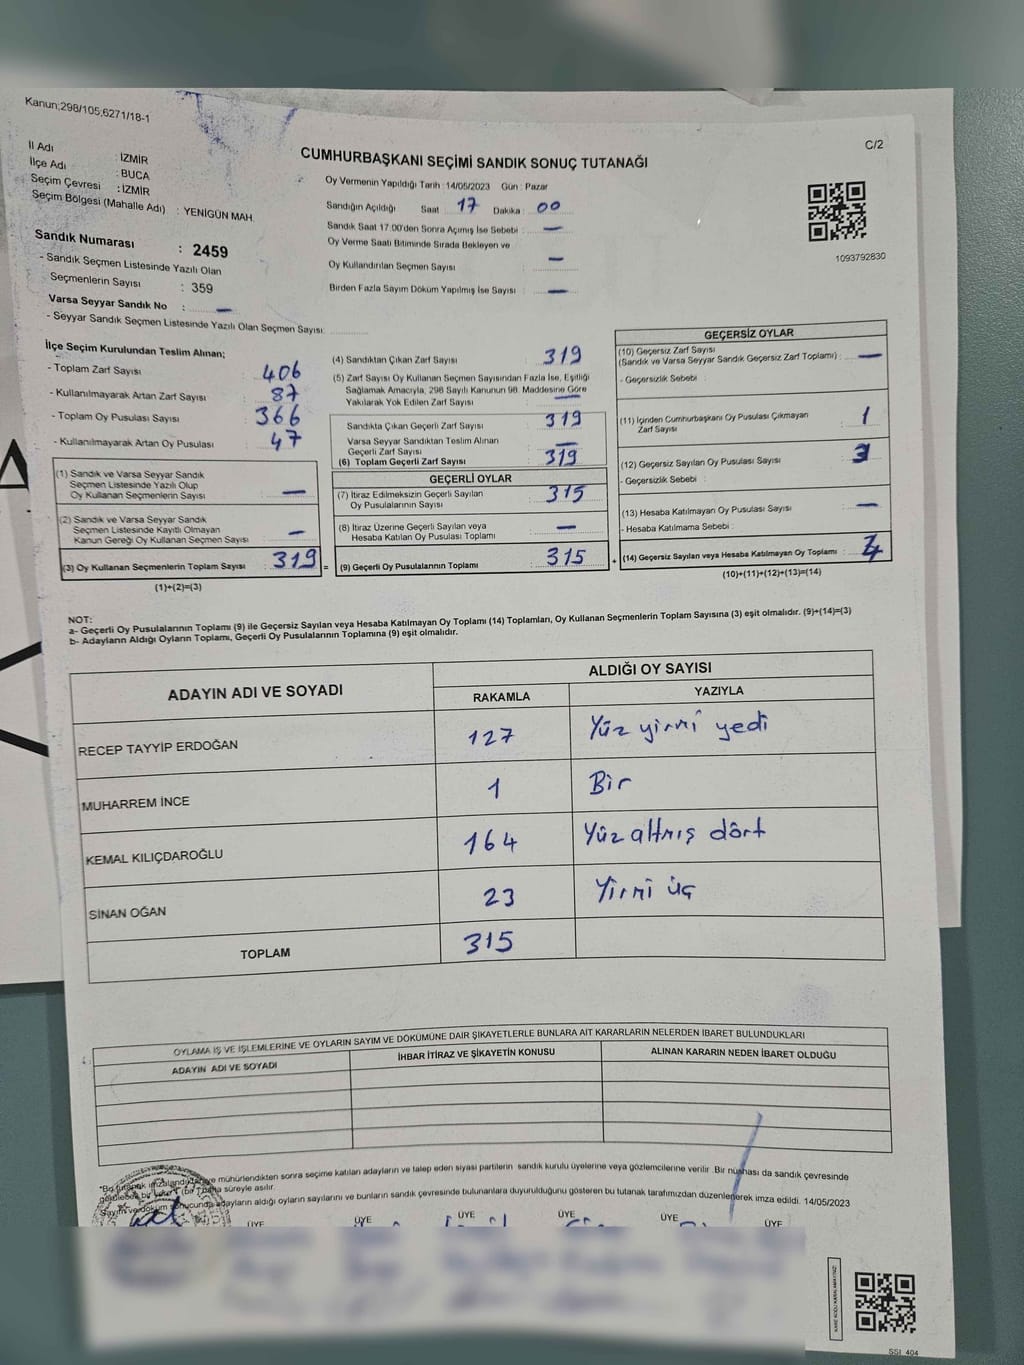 Kanun;298/105;6271/18-1
C/2
İl Adı : İZMİR
İlçe Adı : BUCA
Seçim Çevresi : İZMİR
Seçim Bölgesi (Mahalle Adı) : YENİGÜN MAH.
Sandık Numarası : 2459
- Sandık Seçmen Listesinde Yazılı Olan
Seçmenlerin Sayısı : 359
Varsa Seyyar Sandık No : —
- Seyyar Sandık Seçmen Listesinde Yazılı Olan Seçmen Sayısı:
CUMHURBAŞKANI SEÇİMİ SANDIK SONUÇ TUTANAĞI
Oy Vermenin Yapıldığı Tarih : 14/05/2023 Gün : Pazar
Sandığın Açıldığı Saat 17 Dakika : 00
Sandık Saat 17:00'den Sonra Açımış İse Sebebi : —
Oy Verme Saati Bitiminde Sırada Bekleyen ve
Oy Kullandırılan Seçmen Sayısı : —
Birden Fazla Sayım Döküm Yapılmış İse Sayısı : —
1093792830
İlçe Seçim Kurulundan Teslim Alınan;
- Toplam Zarf Sayısı : 406
- Kullanılmayarak Artan Zarf Sayısı : 87
- Toplam Oy Pusulası Sayısı : 366
- Kullanılmayarak Artan Oy Pusulası : 47
(1) Sandık ve Varsa Seyyar Sandık
Seçmen Listesinde Yazılı Olup
Oy Kullanan Seçmenlerin Sayısı : —
(2) Sandık ve Varsa Seyyar Sandık
Seçmen Listesinde Kayıtlı Olmayan
Kanun Gereği Oy Kullanan Seçmen Sayısı : —
(3) Oy Kullanan Seçmenlerin Toplam Sayısı : 319 =
(1)+(2)=(3)
(4) Sandıktan Çıkan Zarf Sayısı : 319
(5) Zarf Sayısı Oy Kullanan Seçmen Sayısından Fazla İse, Eşitliği
Sağlamak Amacıyla, 298 Sayılı Kanunun 98. Maddesine Göre
Yakılarak Yok Edilen Zarf Sayısı : —
Sandıkta Çıkan Geçerli Zarf Sayısı : 319
Varsa Seyyar Sandıktan Teslim Alınan
Geçerli Zarf Sayısı : —
(6) Toplam Geçerli Zarf Sayısı : 319
GEÇERLİ OYLAR
(7) İtiraz Edilmeksizin Geçerli Sayılan
Oy Pusulalarının Sayısı : 315
(8) İtiraz Üzerine Geçerli Sayılan veya
Hesaba Katılan Oy Pusulası Toplamı : —
(9) Geçerli Oy Pusulalarının Toplamı : 315 +
GEÇERSİZ OYLAR
(10) Geçersiz Zarf Sayısı
(Sandık ve Varsa Seyyar Sandık Geçersiz Zarf Toplamı) : —
- Geçersizlik Sebebi :
(11) İçinden Cumhurbaşkanı Oy Pusulası Çıkmayan
Zarf Sayısı : 1
(12) Geçersiz Sayılan Oy Pusulası Sayısı : 3
- Geçersizlik Sebebi :
(13) Hesaba Katılmayan Oy Pusulası Sayısı : —
- Hesaba Katılmama Sebebi :
(14) Geçersiz Sayılan veya Hesaba Katılmayan Oy Toplamı : 4
(10)+(11)+(12)+(13)=(14)
NOT:
a- Geçerli Oy Pusulalarının Toplamı (9) ile Geçersiz Sayılan veya Hesaba Katılmayan Oy Toplamı (14) Toplamları, Oy Kullanan Seçmenlerin Toplam Sayısına (3) eşit olmalıdır. (9)+(14)=(3)
b- Adayların Aldığı Oyların Toplamı, Geçerli Oy Pusulalarının Toplamına (9) eşit olmalıdır.
ADAYIN ADI VE SOYADI ALDIĞI OY SAYISI
RAKAMLA YAZIYLA
RECEP TAYYİP ERDOĞAN 127 Yüz yirmi yedi
MUHARREM İNCE 1 Bir
KEMAL KILIÇDAROĞLU 164 Yüz altmış dört
SİNAN OĞAN 23 Yirmi üç
TOPLAM 315
OYLAMA İŞ VE İŞLEMLERİNE VE OYLARIN SAYIM VE DÖKÜMÜNE DAİR ŞİKAYETLERLE BUNLARA AİT KARARLARIN NELERDEN İBARET BULUNDUKLARI
ADAYIN ADI VE SOYADI İHBAR İTİRAZ VE ŞİKAYETİN KONUSU ALINAN KARARIN NEDEN İBARET OLDUĞU
"Bu tutanak imzalandıktan ve mühürlendikten sonra seçime katılan adayların ve talep eden siyasi partilerin sandık kurulu üyelerine veya gözlemcilerine verilir. Bir nüshası da sandık çevresinde
bir hafta süreyle asılır.
Sayım ve döküm sonucunda adayların aldığı oyların sayılarını ve bunların sandık çevresinde bulunanlara duyurulduğunu gösteren bu tutanak tarafımızdan düzenlenerek imza edildi. 14/05/2023
ÜYE ÜYE ÜYE ÜYE ÜYE ÜYE
SSI_404